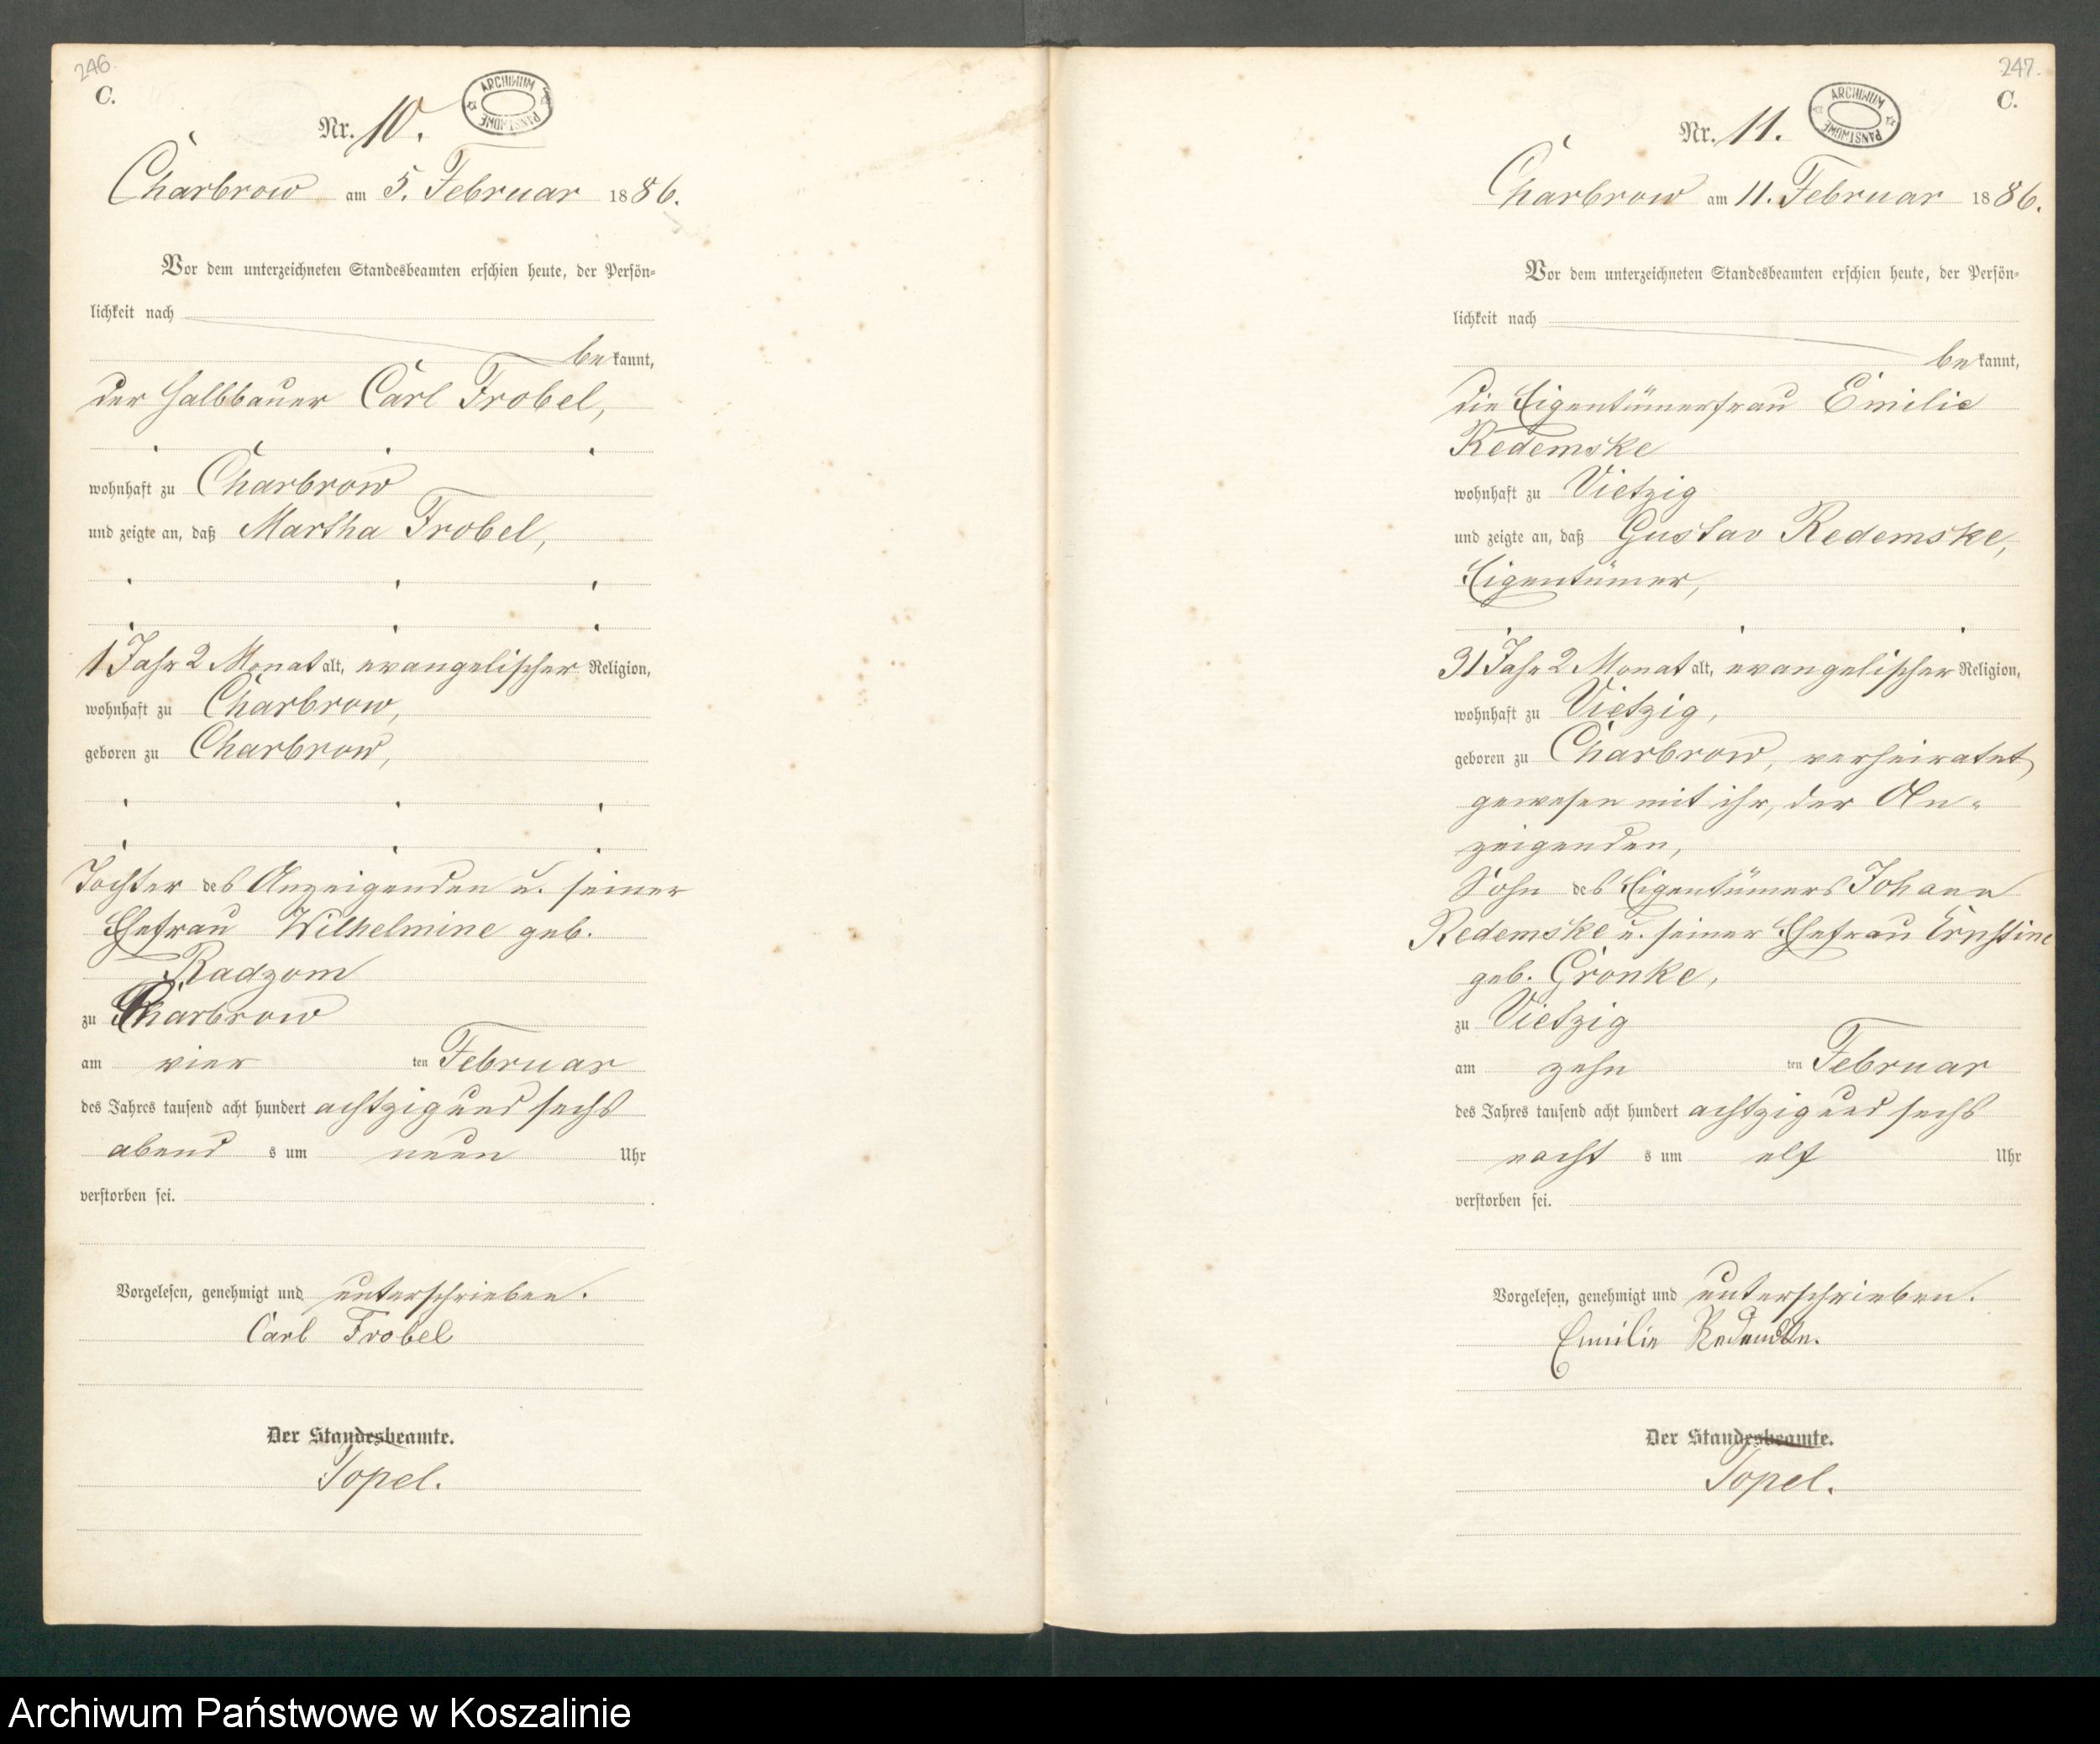 246.
C.
ARCHIWUM PAŃSTWOWE
Nr. 10.
Charbrow am 5. Februar 1886.
Vor dem unterzeichneten Standesbeamten erschien heute, der Persön-
lichkeit nach
bekannt,
der Halbbauer Carl Frobel,
wohnhaft zu Charbrow
und zeigte an, daß Martha Frobel,
1 Jahr 2 Monat alt, evangelischer Religion,
wohnhaft zu Charbrow,
geboren zu Charbrow,
Tochter des Anzeigenden u. seiner
Ehefrau Wilhelmine geb.
Radzom
zu Charbrow
am vier ten Februar
des Jahres tausend acht hundert achtzig und sechs
abend s um neun Uhr
verstorben sei.
Vorgelesen, genehmigt und unterschrieben.
Carl Frobel
Der Standesbeamte.
Topel.
247.
C.
ARCHIWUM PAŃSTWOWE
Nr. 11.
Charbrow am 11. Februar 1886.
Vor dem unterzeichneten Standesbeamten erschien heute, der Persön-
lichkeit nach
bekannt,
die Eigentümerfrau Emilie
Redemske
wohnhaft zu Vietzig
und zeigte an, daß Gustav Redemske,
Eigentümer,
31 Jahr 2 Monat alt, evangelischer Religion,
wohnhaft zu Vietzig,
geboren zu Charbrow, verheiratet
gewesen mit ihr, der An-
zeigenden,
Sohn des Eigentümers Johann
Redemske u. seiner Ehefrau Ernstine
geb. Gronke,
zu Vietzig
am zehn ten Februar
des Jahres tausend acht hundert achtzig und sechs
nacht s um elf Uhr
verstorben sei.
Vorgelesen, genehmigt und unterschrieben.
Emilie
Der Standesbeamte.
Topel.
Archiwum Państwowe w Koszalinie